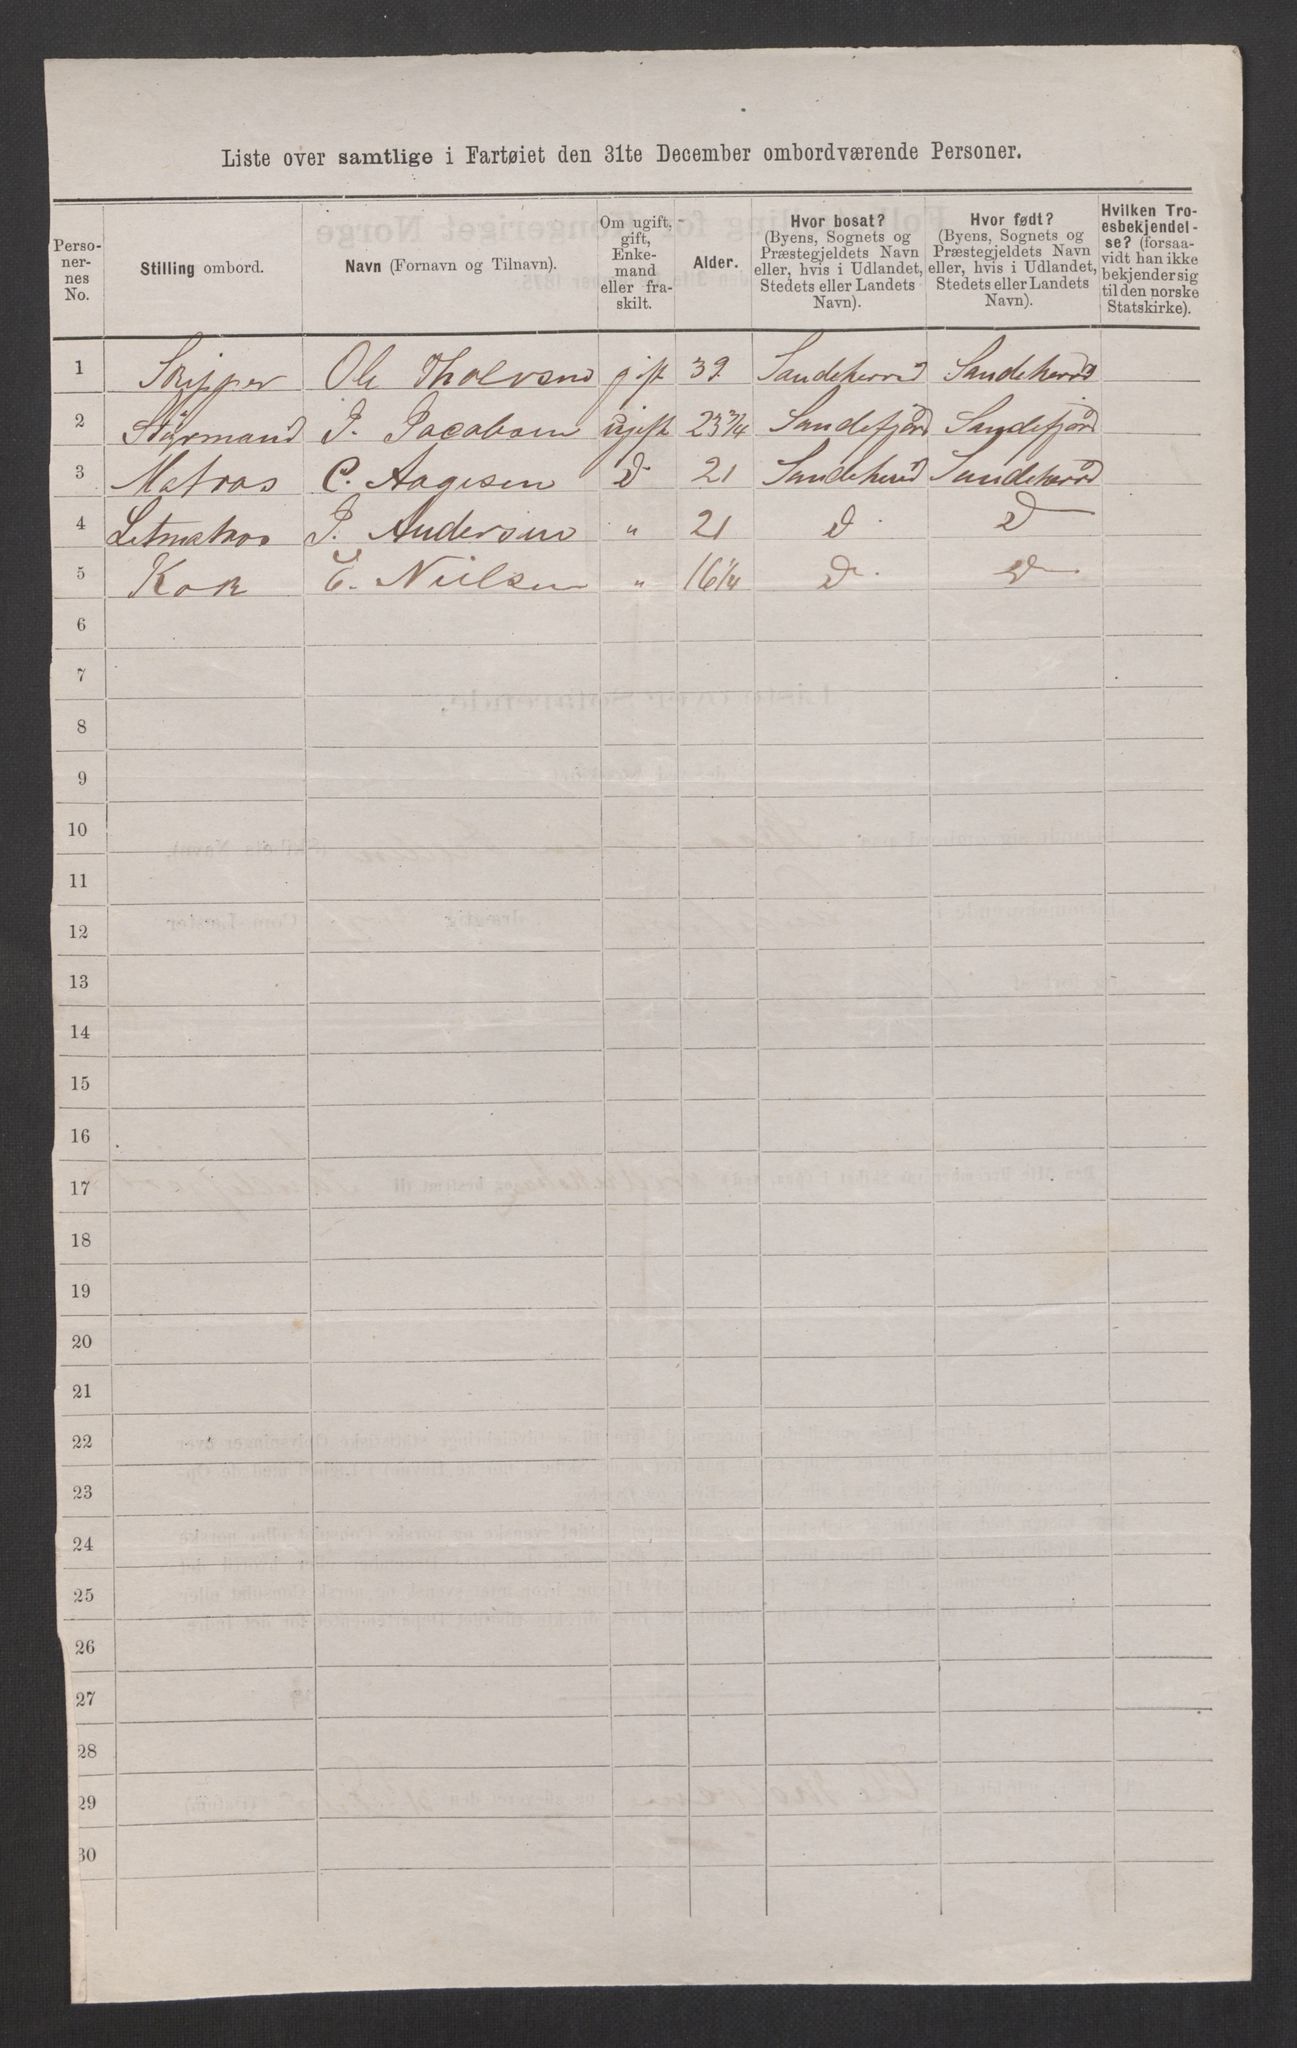 Liste over samtlige i Fartøiet den 31te December ombordværende Personer.
Perso-
ner-
nes
No.
Stilling ombord.
Navn (Fornavn og Tilnavn).
Om ugift,
gift,
Enke-
mand
eller fra-
skilt.
Alder.
Hvor bosat?
(Byens, Sognets og
Præstegjeldets Navn
eller, hvis i Udlandet,
Stedets eller Landets
Navn).
Hvor født?
(Byens, Sognets og
Præstegjeldets Navn
eller, hvis i Udlandet,
Stedets eller Landets
Navn).
Hvilken Tro-
esbekjendel-
se? (forsaa-
vidt han ikke
bekjender sig
til den norske
Statskirke).
1 Skipper Ole Tholvsen gift 39 Sandeherred Sandeherred
2 Styrmand J. Jacobsen ugift 23 3/4 Sandefjord Sandefjord
3 Matros C. Aagesen D 21 Sandeherred Sandeherred
4 Letmatros J. Andersen " 21 D D
5 Kok E. Nielsen " 16 1/4 D D
6
7
8
9
10
11
12
13
14
15
16
17
18
19
20
21
22
23
24
25
26
27
28
29
30